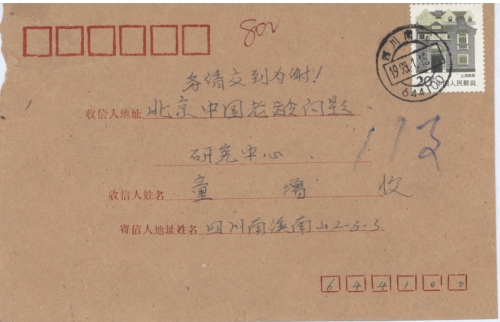 802
四川南
1993.1.15
644100
20
上海民居
中国人民邮政
务倩交到为谢!
收信人地址 北京中国老龄问题
113
研究中心
收信人姓名 童增 收
寄信人地址姓名 四川南溪南山2-5-3
644100